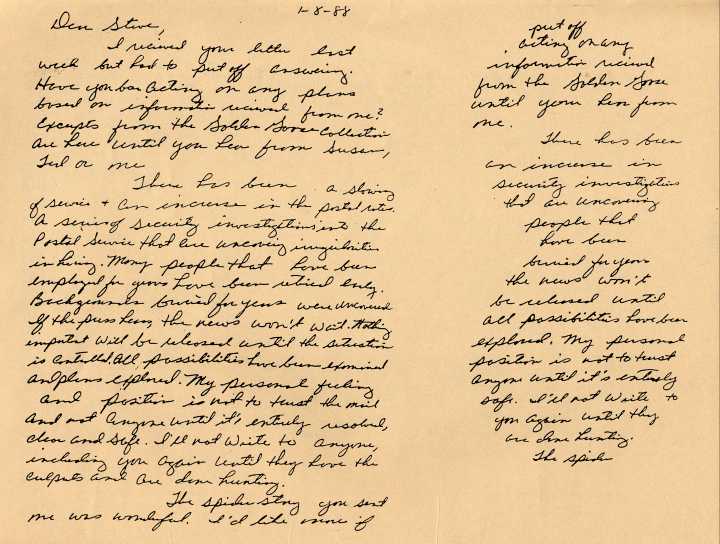 1-8-88
Dear Steve,
I received your letter last
week but had to put off answering.
Have you been acting on any plans
based on information received from me?
Excerpts from the Golden Goose Collection
are here until you hear from Susan,
Ted or me
There has been a slowing
of service + an increase in the postal rates.
A series of security investigations into the
Postal Service that are uncovering irregularities
in hiring. Many people that have been
employed for years have been retired early.
Backgrounds buried for years were uncovered
If the press hears, the news won't wait. Nothing
important will be released until the situation
is controlled. All possibilities have been examined
and plans explored. My personal feeling
and position is not to trust the mail
and not anyone until it's entirely resolved,
clean and safe. I'll not write to anyone,
including you again until they have the
culprits and are done hunting.
The spider story you sent
me was wonderful. I'd like more if
put off
acting on any
information received
from the Golden Goose
until your hear from
me.
There has been
an increase in
security investigations
that are uncovering
people that
have been
buried for years
the news won't
be released until
all possibilities have been
explored. My personal
position is not to trust
anyone until it's entirely
safe. I'll not write to
you again until they
are done hunting.
The spider